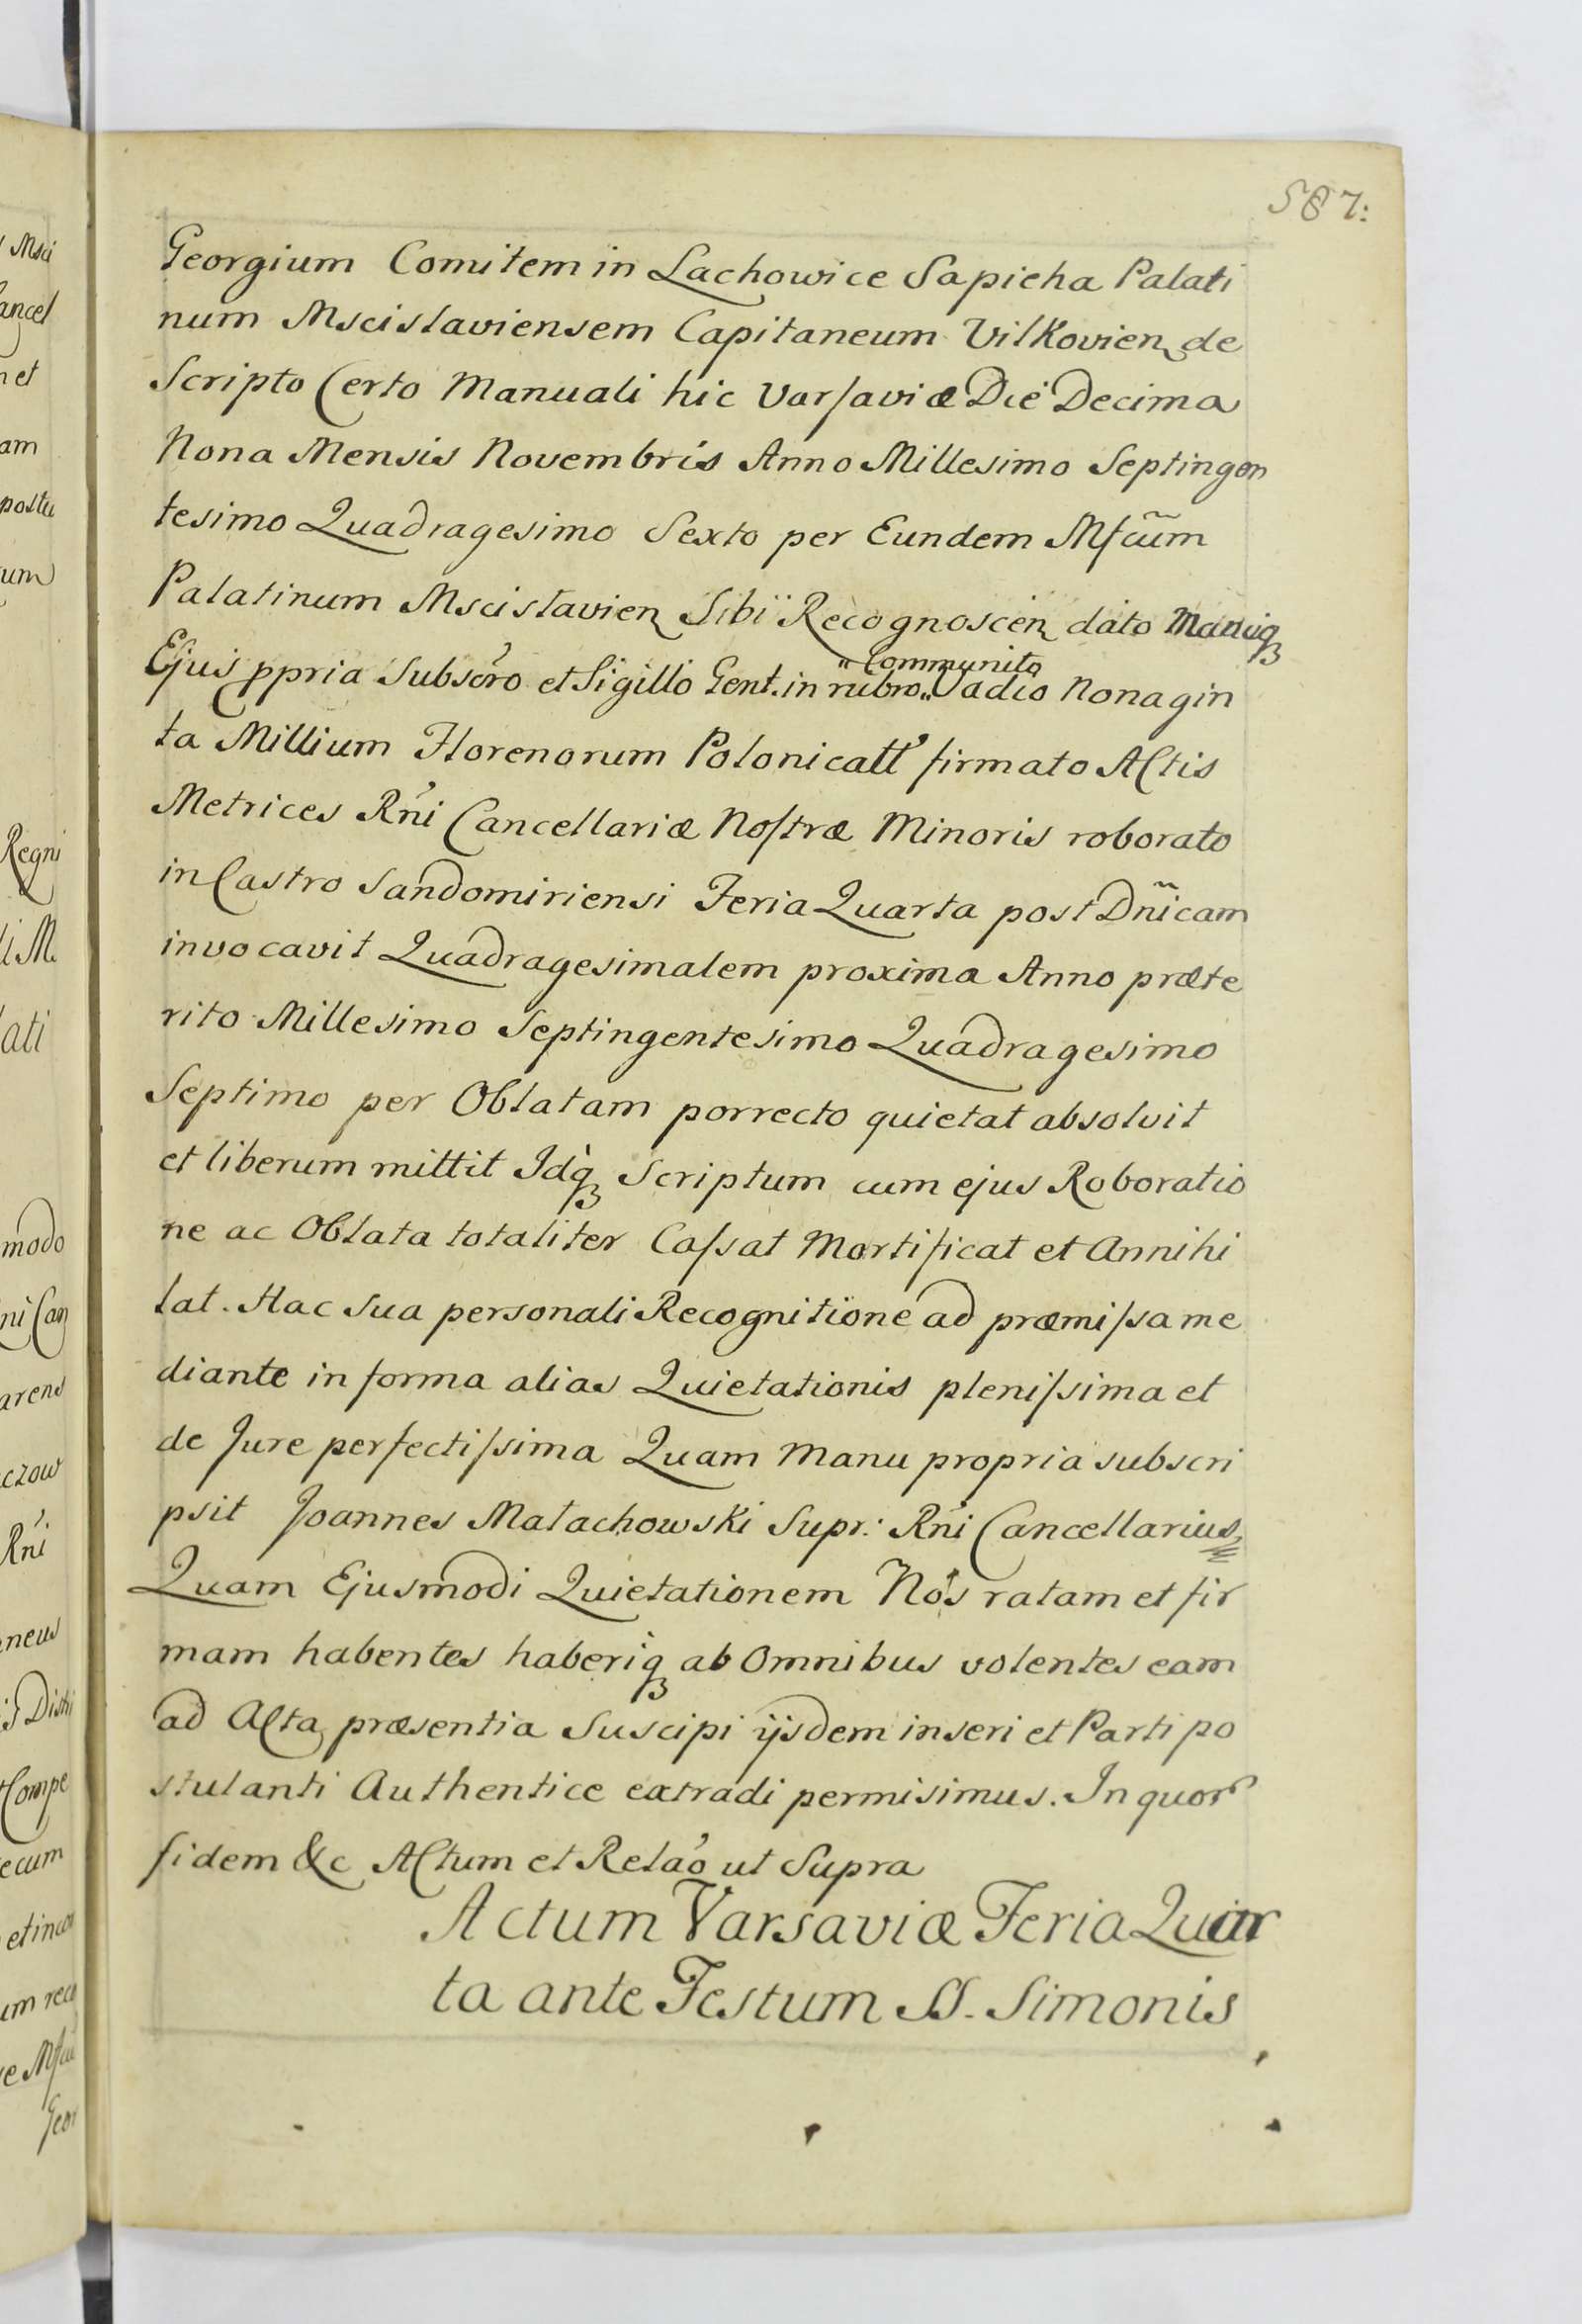 587:
Georgium Comitem in Lachowice Sapieha Palati
num Mscislaviensem Capitaneum Vilkovien de
Scripto Certo Manuali hic Varsaviæ Die Decima
Nona Mensis Novembris Anno Millesimo Septingen
tesimo Quadragesimo Sexto per Eundem Mfcum
Palatinum Mscislavien Sibi Recognoscen dato Manuq
"Communito
Ejus ppria Subscro et Sigillo Gent. in rubro" Vadio Nonagin
ta Millium Florenorum Polonicall firmato Actis
Metrices Rni Cancellariæ Nostræ Minoris roborato
in Castro Sandomiriensi Feria Quarta post Dnicam
invocavit Quadragesimalem proxima Anno præte
rito Millesimo Septingentesimo Quadragesimo
Septimo per Oblatam porrecto quietat absolvit
et liberum mittit Idq Scriptum cum ejus Roboratio
ne ac Oblata totaliter Cassat Mortificat et Annihi
lat. Hac Sua personali Recognitione ad præmissa me
diante in forma alias Quietationis plenissima et
de Jure perfectissima Quam Manu propria subscri
psit Joannes Małachowski Supr: Rni Cancellarius
Quam Ejusmodi Quietationem Nos ratam et fir
mam habentes haberiq ab Omnibus volentes eam
ad Acta præsentia Suscipi ijsdem inseri et Parti po
stulanti Authentice extradi permisimus. In quor
fidem &c Actum et Relao ut Supra
Actum Varsaviæ Feria Quar
ta ante Festum SS. Simonis